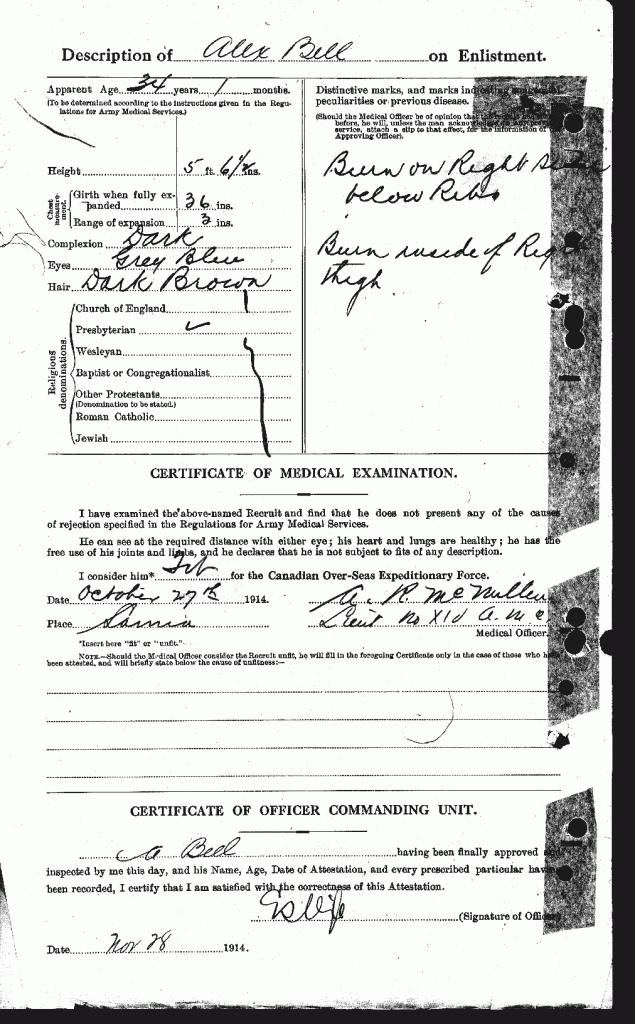 Description of Alex Bell on Enlistment.
Apparent Age 34 years 1 months.
(To be determined according to the instructions given in the Regulations for Army Medical Services.)
Height 5 ft. 6½ ins.
Chest measurement.
Girth when fully expanded 36 ins.
Range of expansion 3 ins.
Complexion Dark
Eyes Grey Blue
Hair Dark Brown
Religious denominations.
Church of England
Presbyterian ✓
Wesleyan
Baptist or Congregationalist
Other Protestants
(Denomination to be stated.)
Roman Catholic
Jewish
Distinctive marks, and marks indicating
peculiarities or previous disease.
(Should the Medical Officer be of opinion that the
before, he will, unless the man
service, attach a slip to that effect, for the information of the
Approving Officer).
Burn on Right
below Ribs
Burn inside of
thigh
CERTIFICATE OF MEDICAL EXAMINATION.
I have examined the above-named Recruit and find that he does not present any of the causes
of rejection specified in the Regulations for Army Medical Services.
He can see at the required distance with either eye; his heart and lungs are healthy; he has the
free use of his joints and limbs, and he declares that he is not subject to fits of any description.
I consider him* Fit for the Canadian Over-Seas Expeditionary Force.
Date October 27th 1914.
A. R. McMillen
Place Sarnia
Lieut No XIV A. M. C.
Medical Officer.
*Insert here "fit" or "unfit."
NOTE.—Should the Medical Officer consider the Recruit unfit, he will fill in the foregoing Certificate only in the case of those who have
been attested, and will briefly state below the cause of unfitness:—
CERTIFICATE OF OFFICER COMMANDING UNIT.
A Bell having been finally approved and
inspected by me this day, and his Name, Age, Date of Attestation, and every prescribed particular having
been recorded, I certify that I am satisfied with the correctness of this Attestation.
(Signature of Officer)
Date Nov 28 1914.